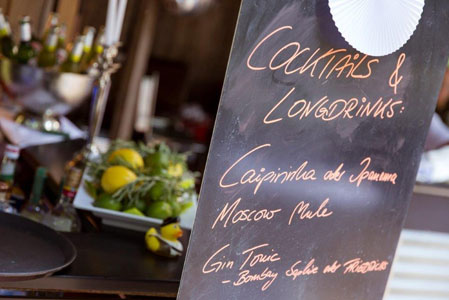 COCKTAILS &
LONGDRINKS:
Caipirinha oder Ipanema
Moscow Mule
Gin Tonic
- Bombay Saphire oder HENDRICKS